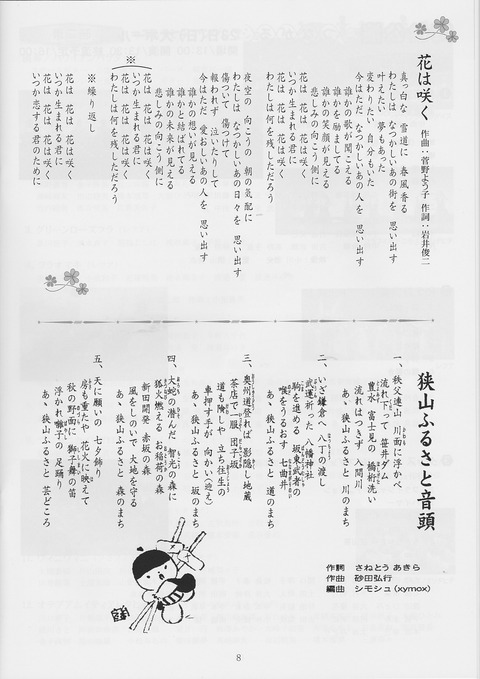 花は咲く 作曲：菅野よう子 作詞：岩井俊二
真っ白な 雪道に 春風香る
わたしは なつかしい あの街を 思い出す
叶えたい 夢もあった
変わりたい 自分もいた
今はただ なつかしい あの人を 思い出す
誰かの歌が聞こえる
誰かを励ましてる
誰かの笑顔が見える
悲しみの向こう側に
花は 花は 花は咲く
いつか生まれる君に
花は 花は 花は咲く
わたしは何を残しただろう
夜空の 向こうの 朝の気配に
わたしは なつかしい あの日々を 思い出す
傷ついて 傷つけて
報われず 泣いたりして
今はただ 愛おしい あの人を 思い出す
誰かの想いが見える
誰かと結ばれてる
誰かの未来が見える
悲しみの向こう側に
※
花は 花は 花は咲く
いつか生まれる君に
花は 花は 花は咲く
わたしは何を残しただろう
※繰り返し
花は 花は 花は咲く
いつか生まれる君に
花は 花は 花は咲く
いつか恋する君のために
狭山ふるさと音頭
作詞 さねとう あきら
作曲 砂田弘行
編曲 シモシュ(xymox)
一、秩父連山 川面に浮かべ
流れ下って 笹井ダム
豊水 富士見の 橋桁洗い
流れはつきず 入間川
あゝ狭山ふるさと 川のまち
二、いざ鎌倉へ 八丁の渡し
武運祈った 八幡神社
駒を進める 坂東武者の
喉をうるおす 七曲井
あゝ狭山ふるさと 道のまち
三、奥州道登れば 影隠し地蔵
茶店で一服 団子坂
道も険しや 立ち往生の
車押す手が 向かい(迎え)
あゝ狭山ふるさと 坂のまち
四、大蛇の潜んだ 智光の森に
狐火燃える お稲荷の森
新田開発 赤坂の森
風をしのいで 大地を守る
あゝ狭山ふるさと 森のまち
五、天に願いの 七夕飾り
房も重たや 花火に映えて
秋の野面に 獅子舞の笛
浮かれ囃子の 足踊り
あゝ狭山ふるさと 芸どころ
8